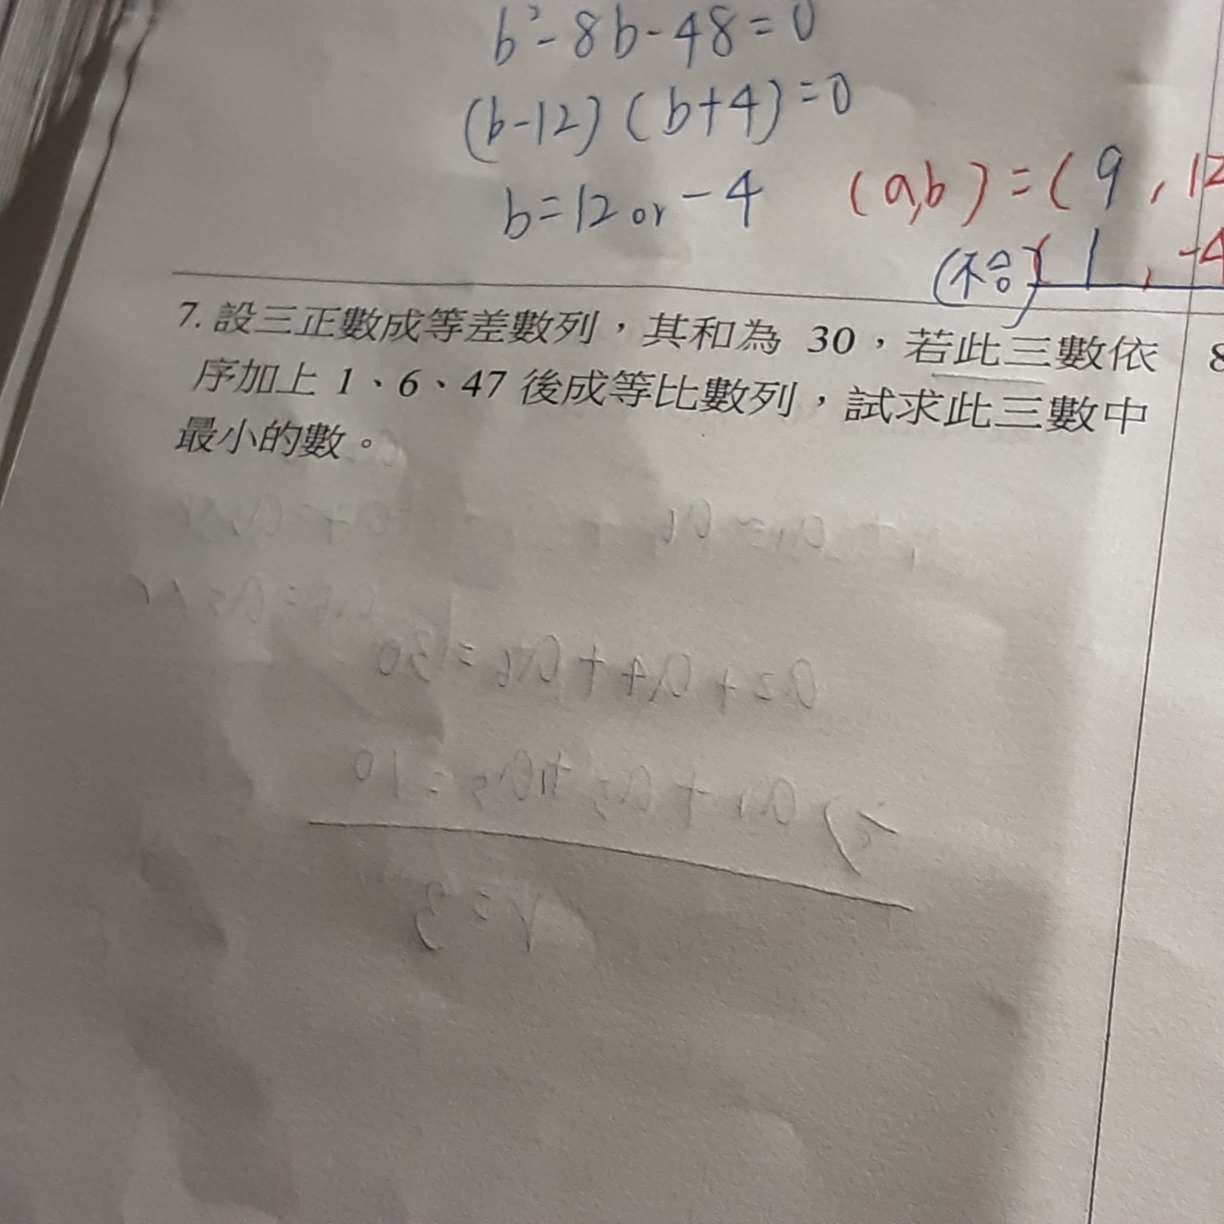 b²-8b-48=0
(b-12)(b+4)=0
b=12 or -4 (a,b)=(9,12
(不合)(1,-4
7. 設三正數成等差數列，其和為 30，若此三數依 8
序加上 1、6、47 後成等比數列，試求此三數中
最小的數。